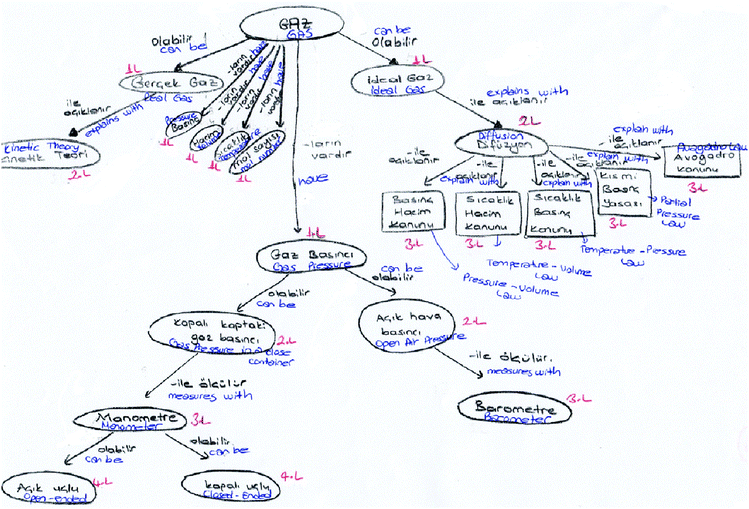 GAZ
GAS
olabilir
can be
can be
olabilir
1.L
Gerçek Gaz
Real Gas
1.L
ideal Gaz
Ideal Gas
-ların
vardır
have
-ların
vardır
have
-ların
vardır
have
-ların
vardır
have
Pressure
Basınç
1L
Hacim
Volume
1L
Sıcaklık
Temperature
1L
mol sayısı
mol number
1L
ile
açıklanır
explains with
Kinetic Theory
Kinetik Teori
2.L
explains with
ile açıklanır
2L
Diffusion
Difüzyon
-ile
açıklanır
explain with
-ile
açıklanır
explain with
-ile
açıklanır
explain with
-ile
açıklanır
explain with
-ile
açıklanır
explain with
Basınç
Hacim
Kanunu
3.L
Sıcaklık
Hacim
Kanunu
3.L
Sıcaklık
Basınç
Kanunu
3.L
Kısmi
Basınç
Yasası
3.L
Avogadro Law
Avogadro
Kanunu
3.L
Partial
Pressure
Law
Temperature-Pressure
Law
Temperature-Volume
Law
Pressure-Volume
Law
-ların
vardır
have
1.L
Gaz Basıncı
Gas Pressure
olabilir
can be
can be
olabilir
Kapalı kaptaki
gaz basıncı
2.L
Gas Pressure in a close
container
Açık hava
basıncı
Open Air Pressure
2.L
-ile ölçülür
measures with
-ile ölçülür.
measures with
Manometre
Manometer
3.L
Barometre
Barometer
3.L
olabilir
can be
olabilir
can be
Açık uçlu
Open-Ended
4.L
Kapalı uçlu
Closed-Ended
4.L